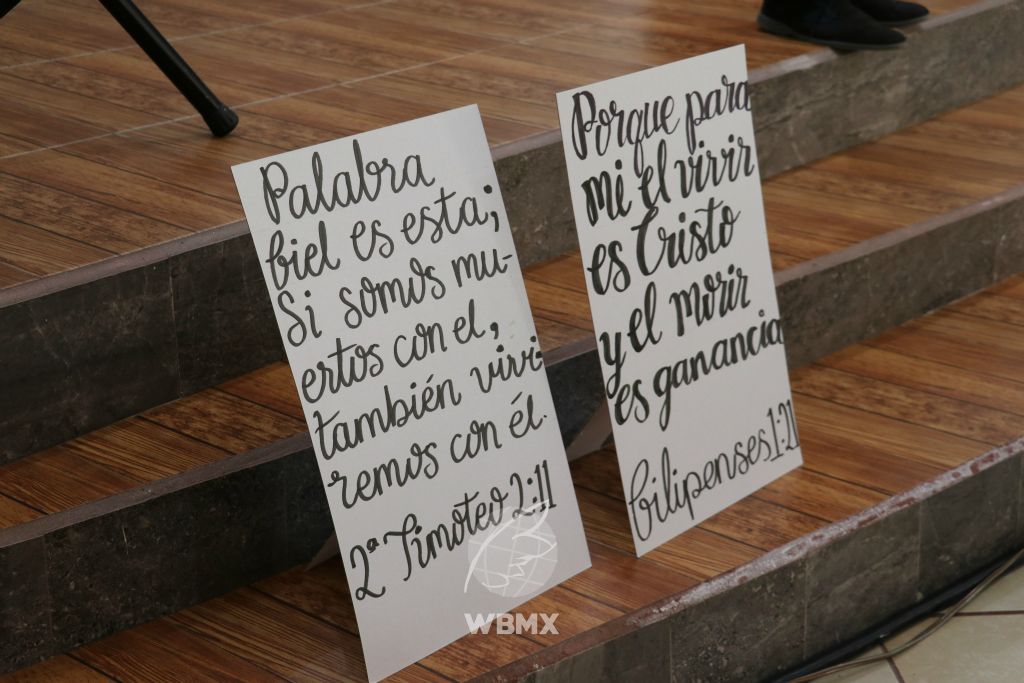 Palabra
fiel es esta;
Si somos mu-
ertos con el,
también vivi-
remos con él.
2ª Timoteo 2:11
Porque para
mi el vivir
es Cristo
y el morir
es ganancia
filipenses 1:21
WBMX